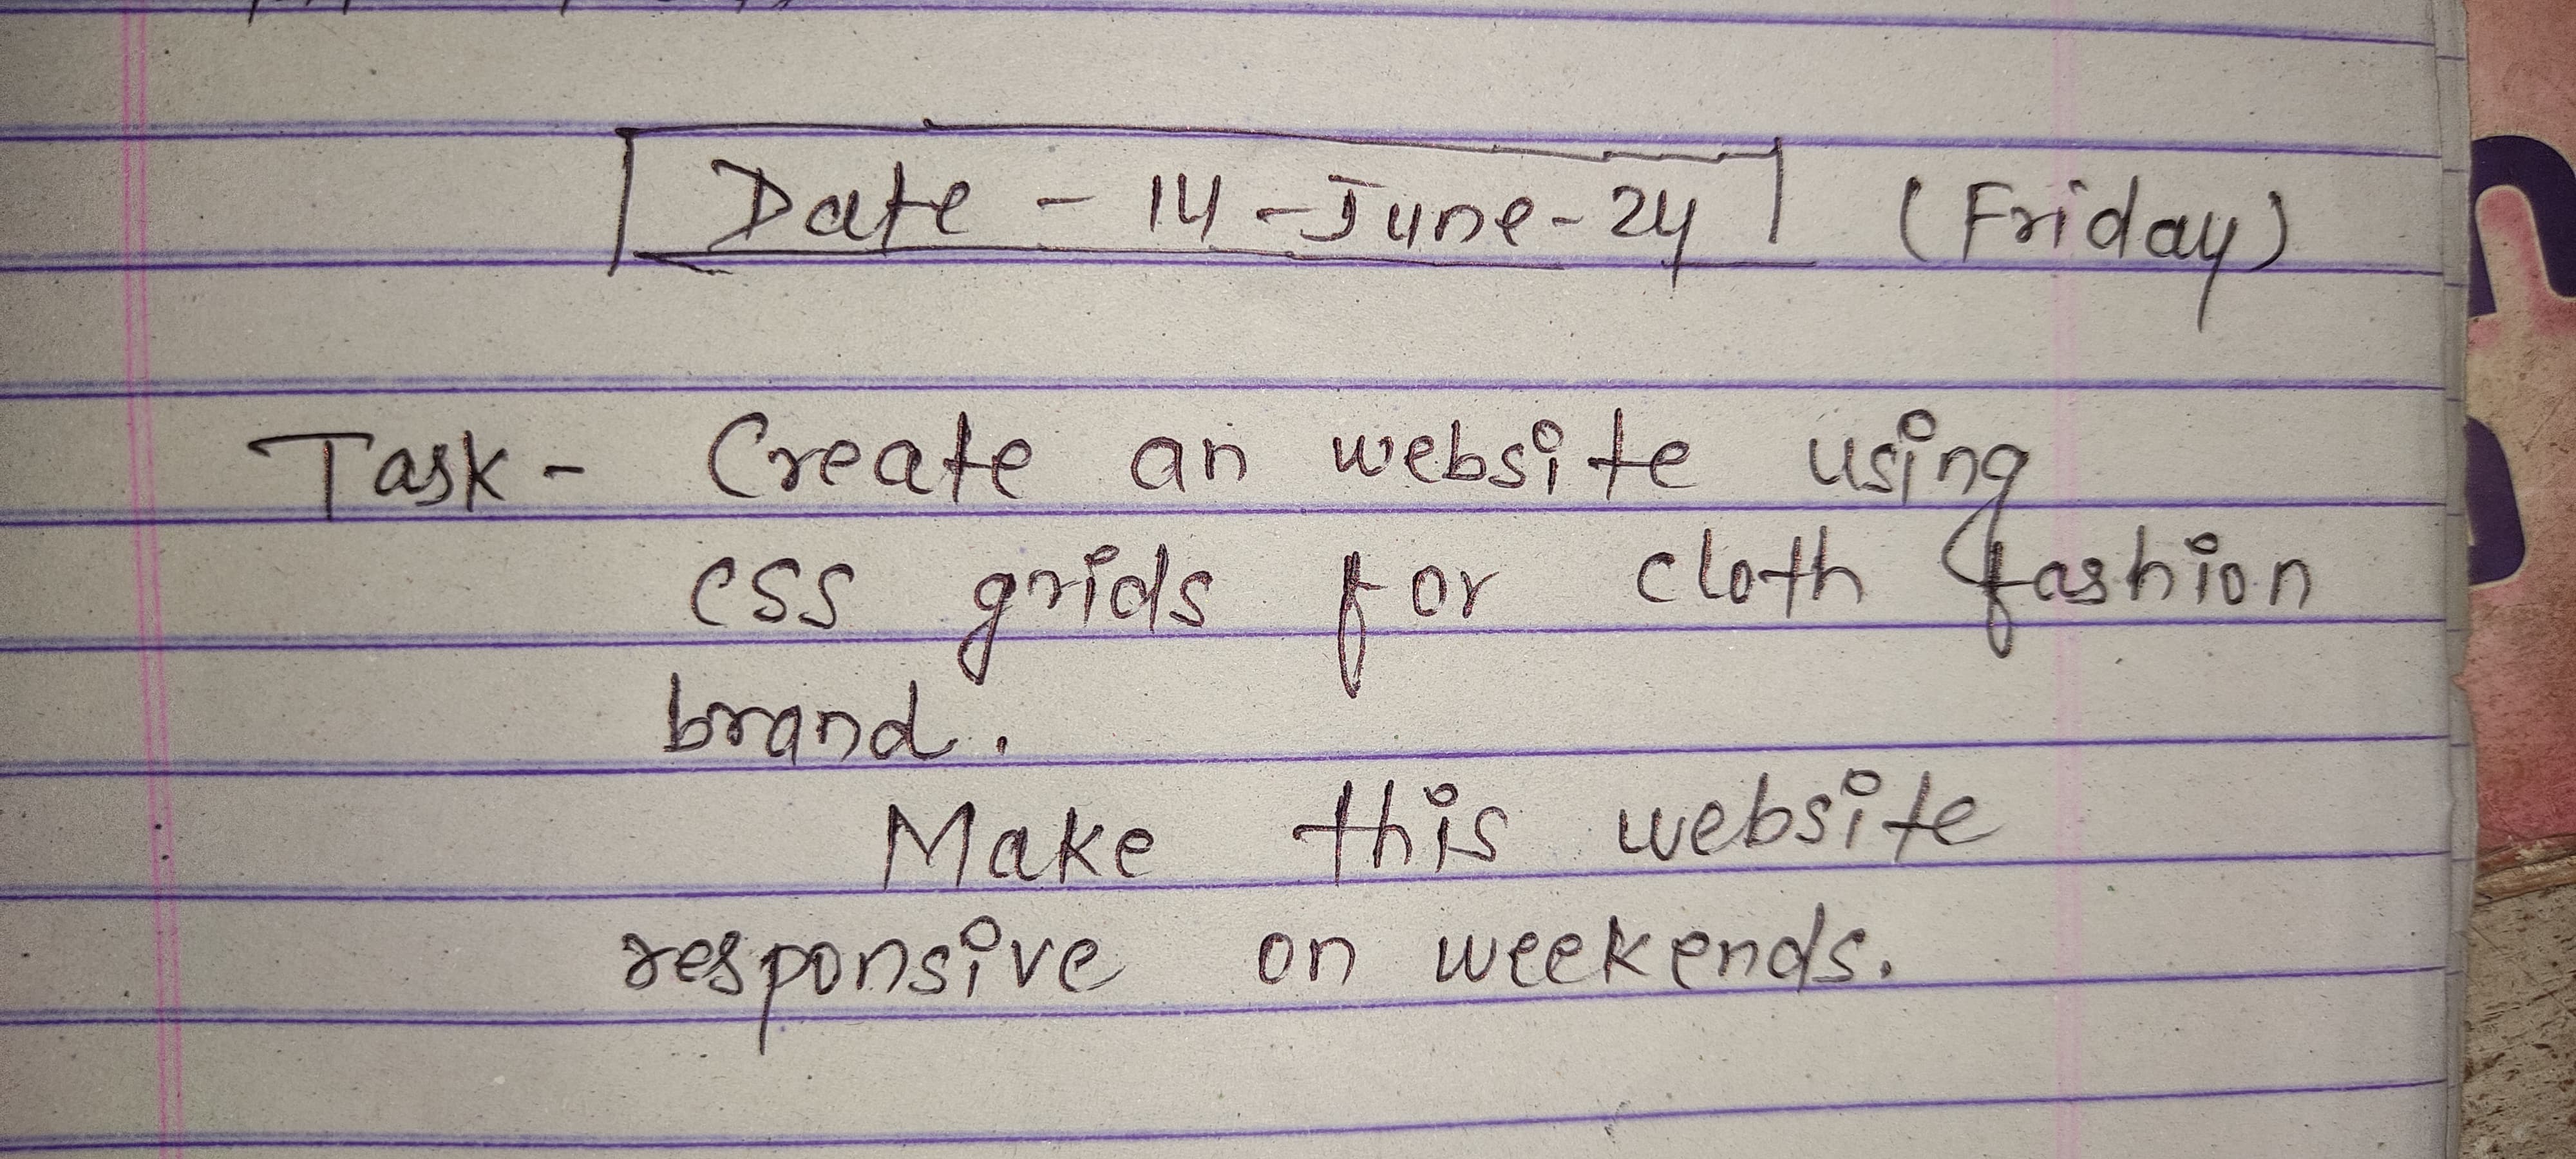 Date - 14 - June - 24 (Friday)
Task - Create an website using
css grids for cloth fashion
brand.
Make this website
responsive on weekends.